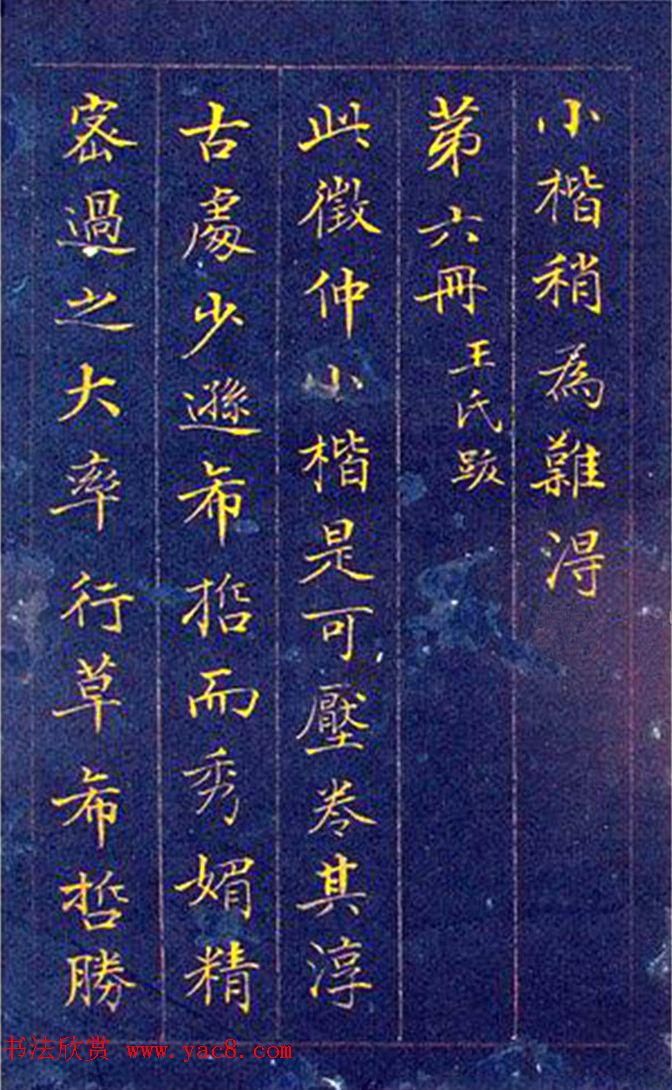 小楷稍為難得
第六冊 王氏跋
此徵仲小楷是可壓卷其淳
古處少遜希哲而秀媚精
密過之大率行草希哲勝
书法欣赏 www.yac8.com